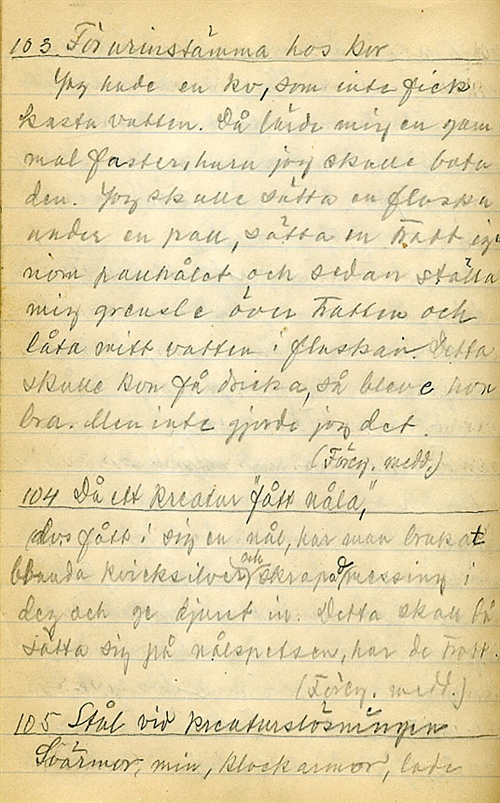 103 För urinstämma hos kor
Jag hade en ko, som inte fick
kasta vatten. Då lärde mig en gam
mal faster, huru jag skulle bota
den. Jag skulle sätta en flaska
under en pall, sätta en tratt ige
nom pallhålet och sedan ställa
mig grensle över tratten och
låta mitt vatten i flaskan. Detta
skulle kon få dricka, så bleve hon
bra. Men inte gjorde jag det.
(Föreg. medd.)
104 Då ett kreatur "fått nåla,"
dvs fått i sig en nål, har man brukat
blanda kvicksilver och skrapad messing i
deg och ge djuret in. Detta skall
sätta sig på nålspetsen, har de trott.
(Föreg. medd.)
105 Stål vid kreaturslösningen
Svärmor min, klockarmor, lade